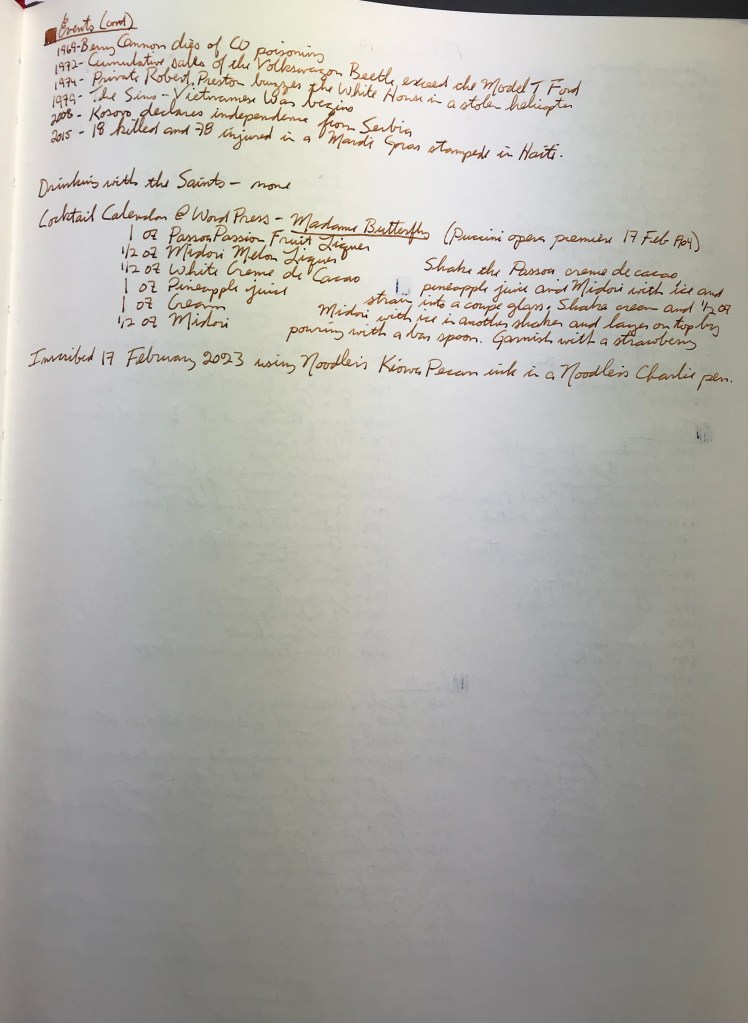 Events (cont)
1969 - Berry Cannon dies of CO poisoning
1972 - Cumulative sales of the Volkswagon Beetle exceed the Model T Ford
1974 - Private Robert Preston buzzes the White House in a stolen helicopter
1979 - The Sino-Vietnamese War begins
2008 - Kosovo declares independence from Serbia
2015 - 18 killed and 78 injured in a Mardi Gras stampede in Haiti.
Drinking with the Saints - none
Cocktail Calendar @ WordPress - Madame Butterfly (Puccini opera premiere 17 Feb 1904)
1 oz Passoa Passion Fruit Liquer
1/2 oz Midori Melon Liquer
1/2 oz White Creme de Cacao
1 oz Pineapple juice
1 oz Cream
1/2 oz Midori
Shake the Passoa, creme de cacao,
pineapple juice and Midori with ice and
strain into a coupe glass. Shake cream and 1/2 oz
Midori with ice in another shaker and layer on top by
pouring with a bar spoon. Garnish with a strawberry
Inscribed 17 February 2023 using Noodler's Kiowa Pecan ink in a Noodler's Charlie pen.